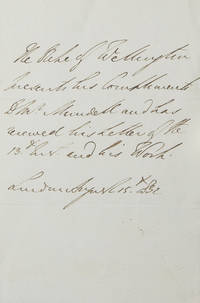 The Duke of Wellington
presents his Compliments
to Mr. Mundell and has
received his Letter of the
13th Inst and his Work.
London August 15th 1832